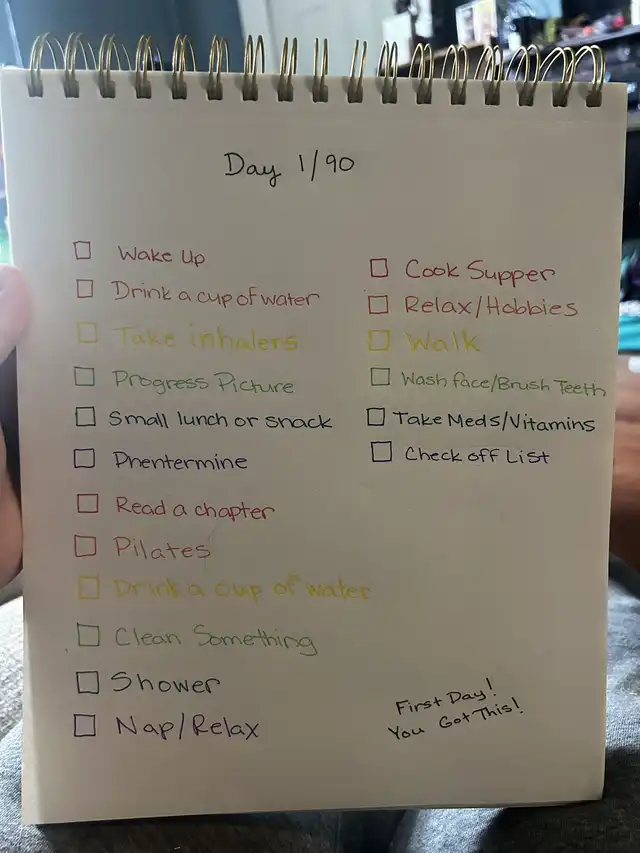 Day 1/90
Wake Up
Drink a cup of water
Take inhalers
Progress Picture
Small lunch or snack
Phentermine
Read a chapter
Pilates
Drink a cup of water
Clean Something
Shower
Nap/Relax
Cook Supper
Relax/Hobbies
Walk
Wash face/Brush Teeth
Take Meds/Vitamins
Check off List
First Day!
You Got This!